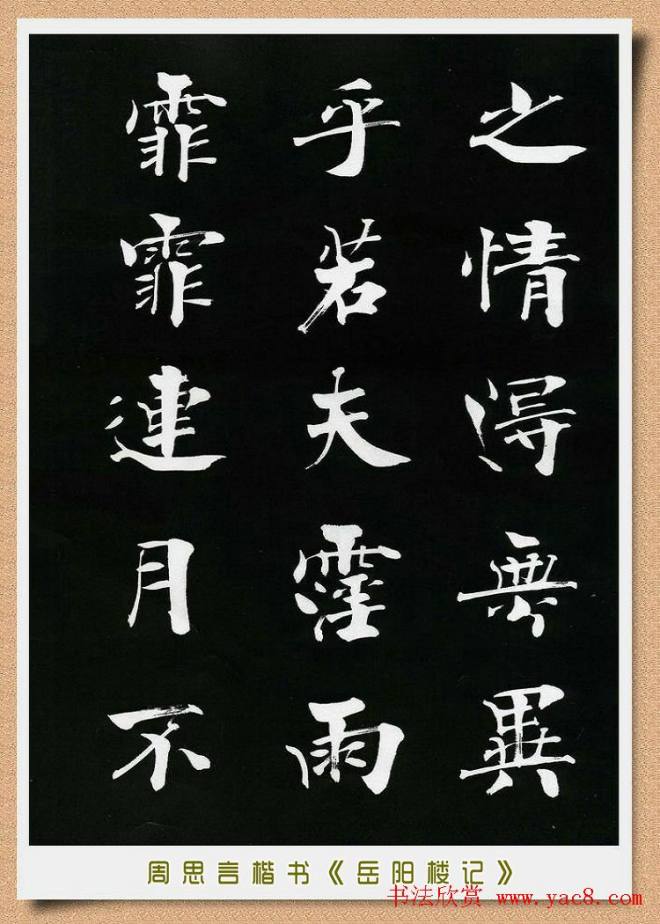 之情得無異
乎若夫霪雨
霏霏連月不
周思言楷书《岳阳楼记》
书法欣赏 www.yac8.com